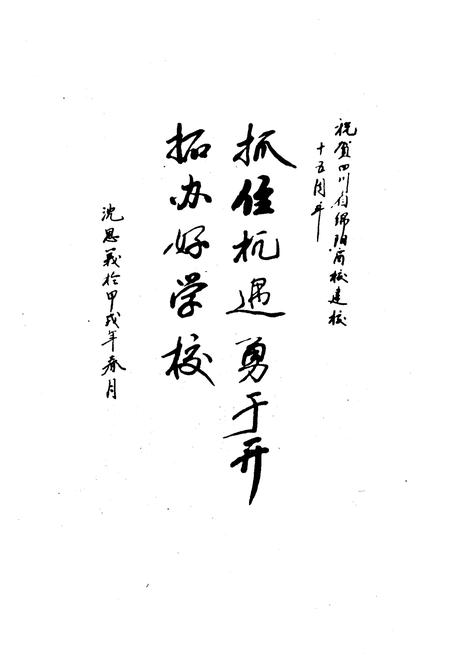 祝贺四川省绵阳商校建校
十五周年
抓住机遇勇于开
拓办好学校
沈思义於甲戌年春月